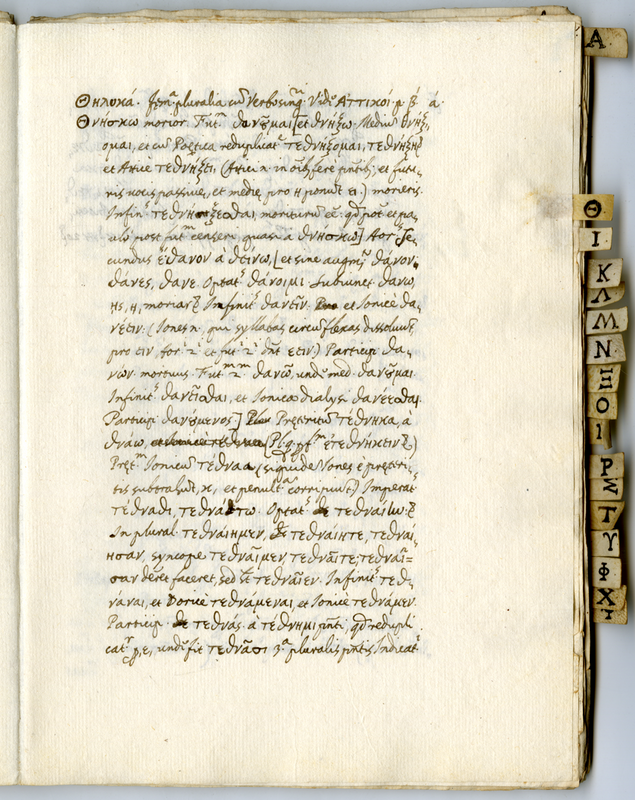 Θηλυκά. Fem.ª pluralia cū Verbo sing. Vid. Ἀττικοί. p. β. á.
Θνήσκω morior. Fut.ᵐ θανοῦμαι [et θνήξω. Mediū θνήξ
ομαι, et cū Poetica reduplicat. τεθνήξομαι, τεθνήξῃ
et Atticè τεθνήξει, (Attici n. in oībus fere pñtib, et futu-
ris vocis passivæ, et mediæ pro η ponūt ει.) morieris.
Infin. τεθνήξεσθαι moriturū eē. qd
ulò post fut.ᵐ censeri, quasi à θνήσκω] Aor. Se-
cundus ἔθανον à θείνω, [et sine augm. θάνον.
θάνες, θάνε. Optat. θάνοιμι. Subiunct. θάνω,
ῃς, ῃ, moriar Infinit. θανεῖν. et Ionicè θα-
νέειν. (Iones n. qui syllabas circūflexas dissolvūt
pro ειν Aor. 2.ⁱ et fut. 2.ⁱ dñt εειν) Particip. θα-
νών mortuus. Fut.ᵐ 2.ᵐ θανῶ, und. med. θανοῦμαι
Infinit. θανεῖσθαι, et Ionica dialys. θανέεσθαι.
Particip. θανούμενος.] Præteritū τέθνηκα, à
θνάω, (Pl.q.pf.ᵐ ἐτεθνήκειν)
Præt.ᵐ Ionicū τέθναα (siquidē Iones è præteri-
tis subtrahūt, κ, et penult.ª corripiunt) Imperat.
τέθναθι, τεθνάτω. Optat. τεθναίω.
In plural. τεθναίημεν, τεθναίητε, τεθναί
ησαν, syncope τεθναῖμεν, τεθναῖτε; τεθναῖ=
σαν deret facere, sed τεθναῖεν. Infinit. τεθ-
νάναι, et Doricè τεθνάμεναι, et Ionicè τεθνάμεν.
Particip. τεθνάς. à τέθνημι pñti, qd redupli
cat. p, ε, undè fit τεθνᾶσι 3.ª pluralis pñtis Indicat.
Α
Θ
Ι
Κ
Λ
Μ
Ν
Ξ
Ο
Ρ
Σ
Τ
Υ
Φ
Χ